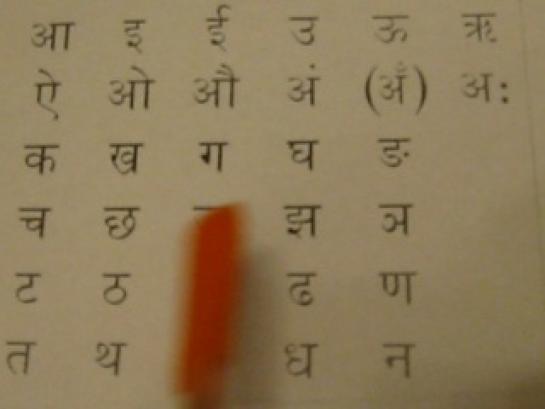 आ इ ई उ ऊ ऋ
ऐ ओ औ अं (अँ) अः
क ख ग घ ङ
च छ झ ञ
ट ठ ढ ण
त थ ध न